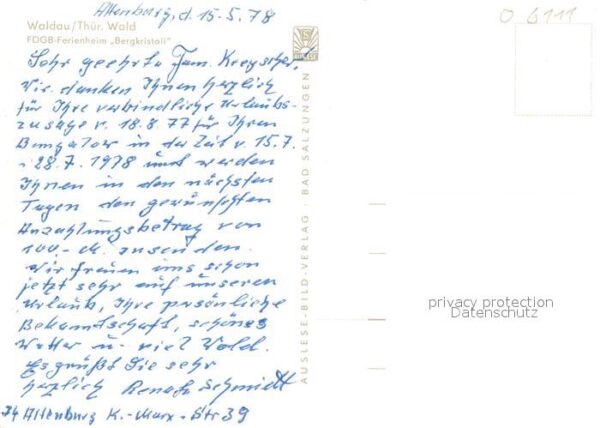 Altenburg, d. 15.5.78
O 6111
Waldau/Thür. Wald
FDGB-Ferienheim „Bergkristall"
Sehr geehrte Fam.
Wir danken Ihnen herzlich
für Ihre verbindliche Urlaubs-
zusage v. 18.8.77 für Ihren
Bungalow in der Zeit v. 15.7.
- 28.7.1978 und werden
Ihnen in den nächsten
Tagen den gewünschten
Anzahlungsbetrag von
100,- M. zusenden.
Wir freuen uns schon
jetzt sehr auf unseren
Urlaub, Ihre persönliche
Bekanntschaft, schönes
Wetter u. viel Wald.
Es grüßt Sie sehr
herzlich Renate Schmidt
74 Altenburg K.-Marx-Str 39
AUSLESE-BILD-VERLAG · BAD SALZUNGEN
privacy protection
Datenschutz